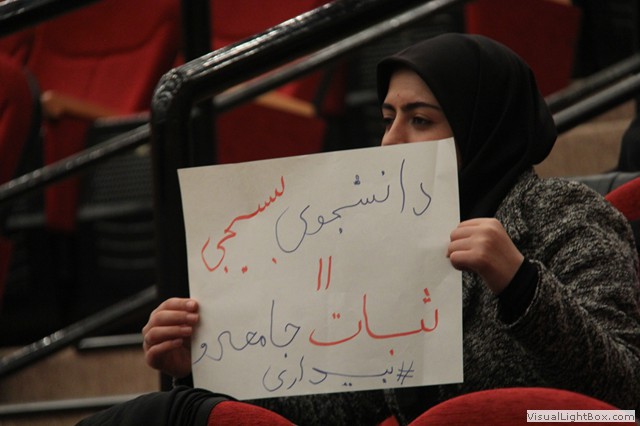 دانشجوی بسیجی
=
ثبات جامعه و
#بیداری
VisualLightBox.com